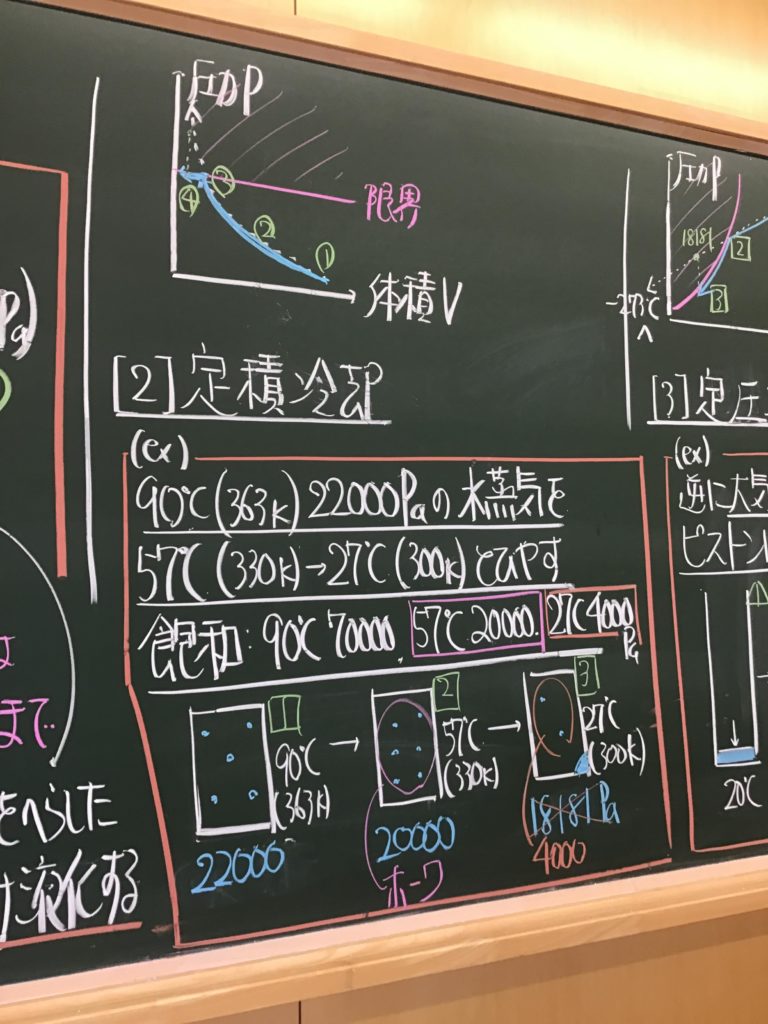 Pa)
は
まで
をへらした
け液化する
圧力P
限界
④ ③ ② ①
体積V
[2]定積冷却
(ex)
90℃(363K)22000Paの水蒸気を
57℃(330K)→27℃(300K)とひやす
飽和:90℃70000, 57℃20000. 27℃4000
Pa
1 90℃ (363K) 22000
→
2 57℃ (330K) 20000 ホーワ
→
3 27℃ (300K) 18181Pa 4000
圧力P
18181
2
3
-273℃
[3]定圧
(ex)
逆に大気
ピストン
1
20℃